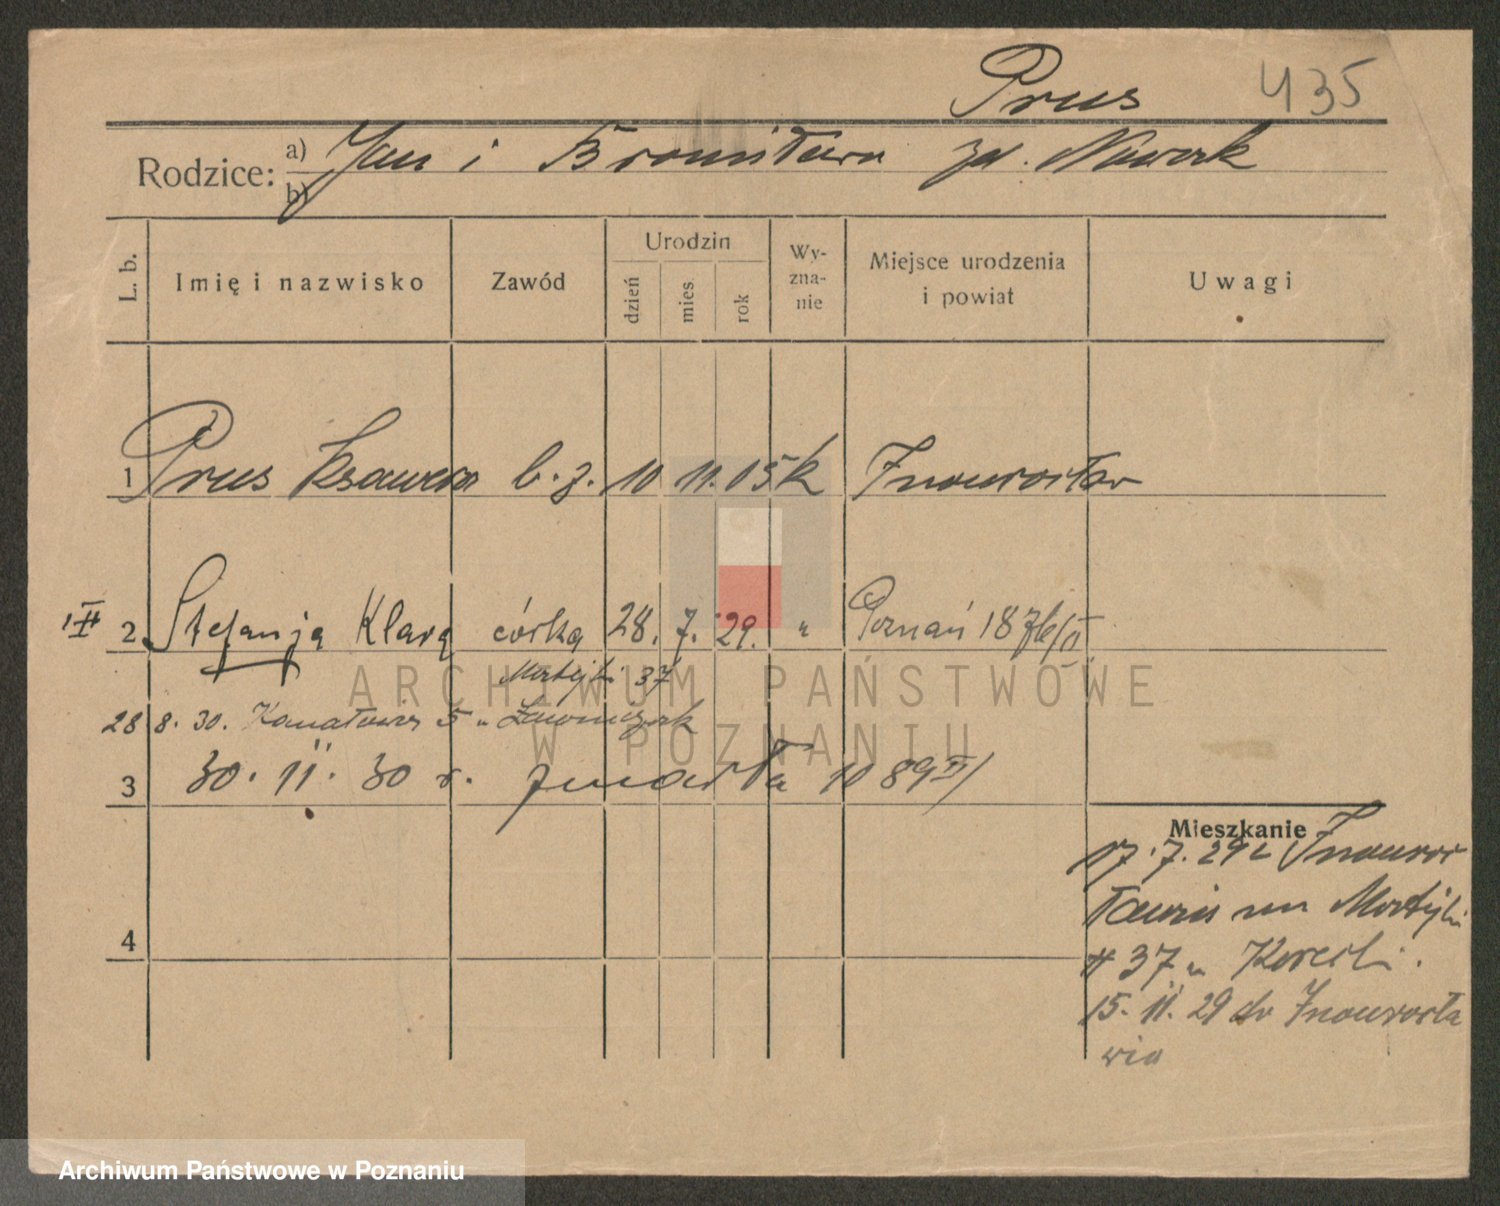 Prus 435
Rodzice: a) Jan i Bronisława zd. Nowak
b)
L. b. Imię i nazwisko Zawód Urodzin dzień mies. rok Wy-zna-nie Miejsce urodzenia i powiat Uwagi
1 Prus Ksawera b. z. 10 11. 05 k Inowrocław
2 Stefanja Klara córka 28. 7. 29. " Poznań 1876/II
Matejki 37
28 8. 30. Kanałowa 5 u
3 30. 11. 30 r. zmarła 1089 II/
Mieszkanie
17. 7. 29 z Inowroc
ławia na Matejki
37 u
4
15. 11. 29 do Inowrocła
wia
ARCHIWUM PAŃSTWOWE
W POZNANIU
Archiwum Państwowe w Poznaniu